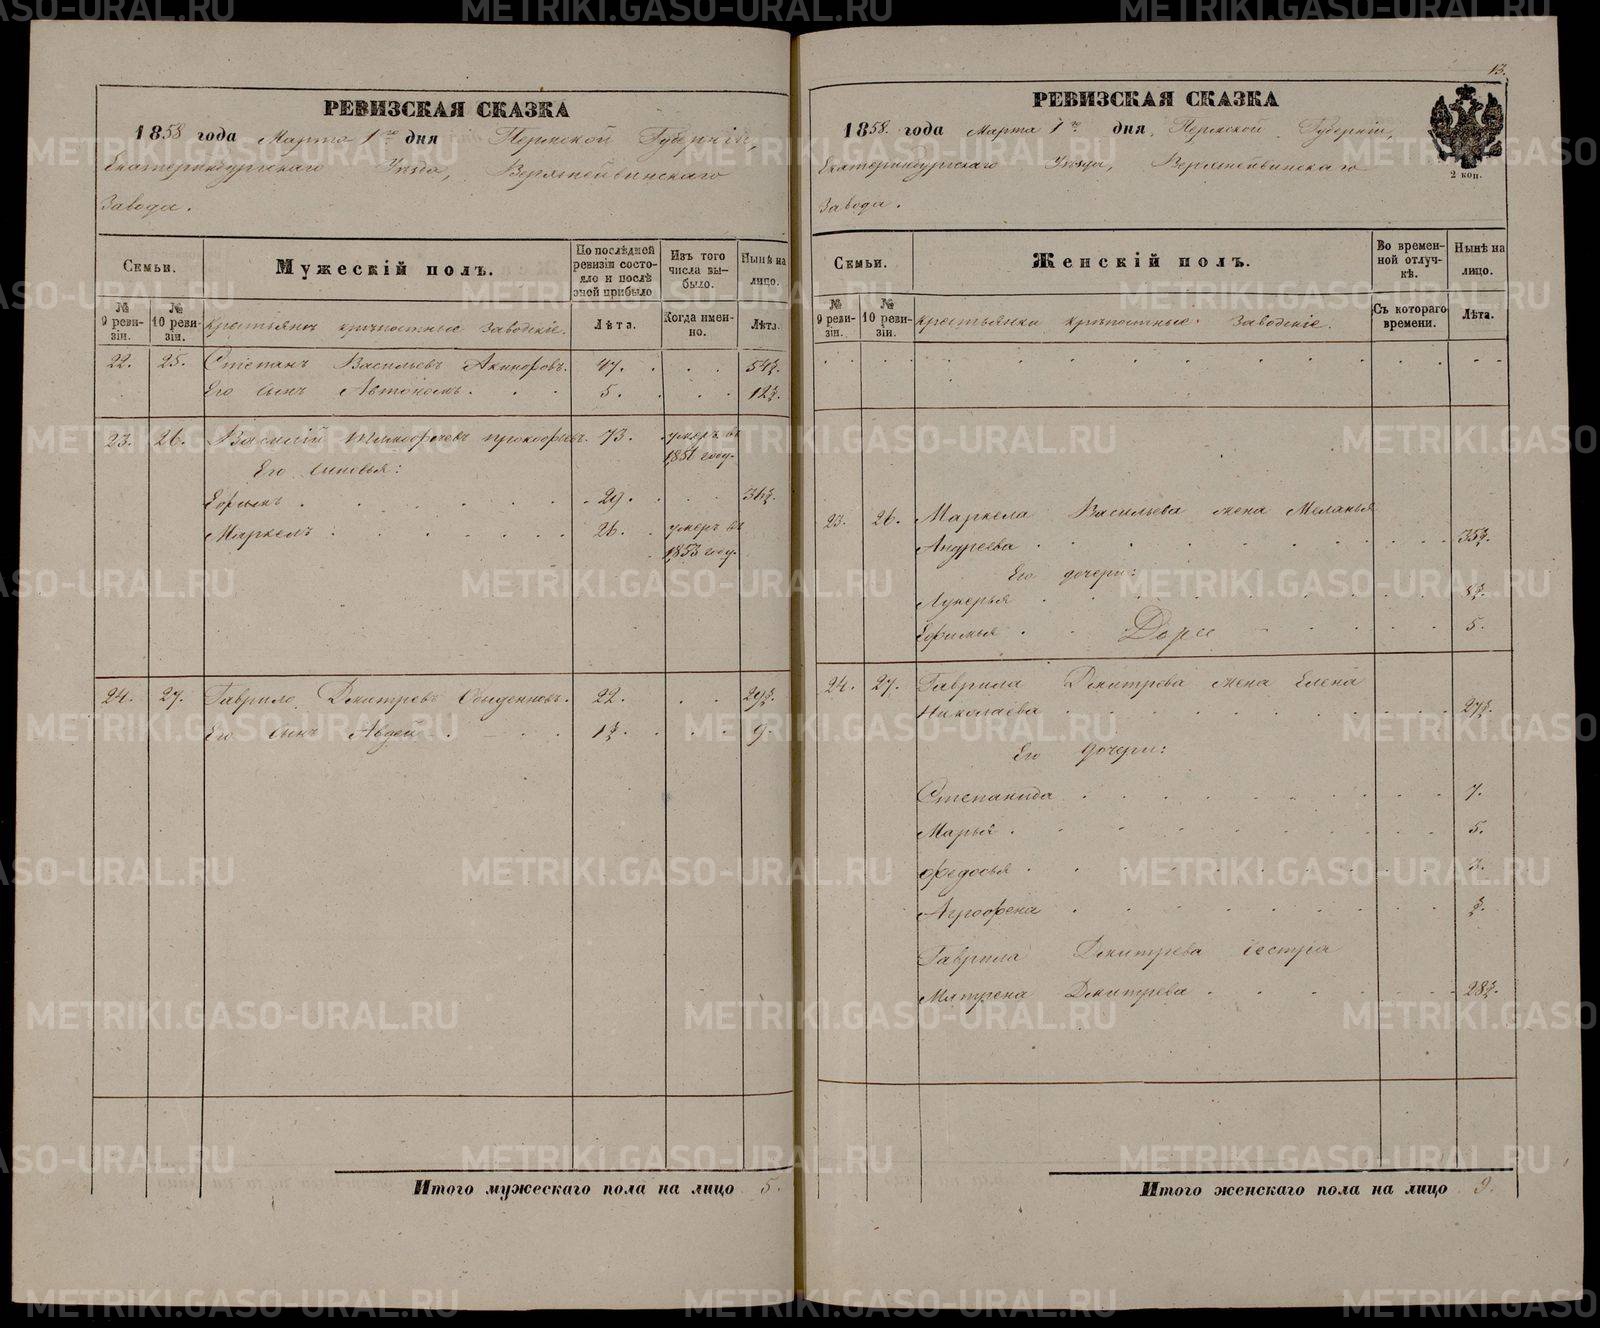 РЕВИЗСКАЯ СКАЗКА
1858 года Марта 1го дня Пермской Губерніи,
Екатеринбургскаго Уѣзда, Верхнейвинскаго
Завода.
Семьи.
Мужескій полъ.
По послѣдней ревизіи состояло и послѣ эной прибыло
Изъ того числа выбыло.
Нынѣ на лицо.
№ 9 ревизіи.
№ 10 ревизіи.
Крестьянъ крѣпостные Заводскіе.
Лѣта.
Когда именно.
Лѣта.
22. 25. Степанъ Васильевъ 47. 54½.
Его сынъ Автономъ. 5. 12½.
23. 26. Василій 73. умеръ въ
1851 году.
Его сыновья:
Ефимъ 29. 36½.
Маркелъ 26. умеръ въ
1853 году.
24. 27. Гаврило Дмитревъ 22. 29½.
Его сынъ Авдей 1½. 9.
Итого мужескаго пола на лицо 5.
13.
РЕВИЗСКАЯ СКАЗКА
1858. года Марта 1го дня, Пермской Губерніи,
Екатеринбургскаго Уѣзда, Верхнейвинскаго
Завода.
2 коп.
Семьи.
Женскій полъ.
Во временной отлучкѣ.
Нынѣ на лицо.
№ 9 ревизіи.
№ 10 ревизіи.
Крестьянки крѣпостные Заводскіе.
Съ котораго времени.
Лѣта.
23. 26. Маркела Васильева жена Меланья
Андреева 35½.
Его дочери:
Лукерья 8½.
Ефимья 5.
24. 27. Гаврила Дмитрева жена Елена
Николаева 27½.
Его дочери:
Степанида 7.
Марья 5.
Федосья 3.
Агрофена ½.
Гаврила Дмитрева сестра
Матрена Дмитрева 28½.
Итого женскаго пола на лицо 9.
METRIKI.GASO-URAL.RU